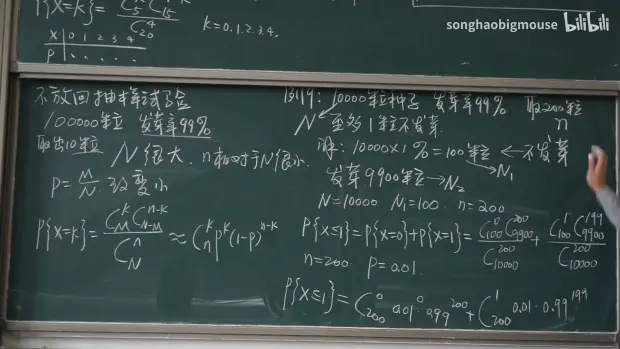 songhaobigmouse bilibili
P{X=k} = C_5^k C_15 / C_20^4   k=0.1.2.3.4.
X | 0 1 2 3 4
P | . . . . .
不放回抽样试验
100000粒 发芽率99%
取出10粒 N很大, n相对于N很小.
P = M/N 改变小
P{X=k} = C_M^k C_{N-M}^{n-k} / C_N^n ≈ C_n^k p^k (1-p)^{n-k}
例9: 10000粒种子 发芽率99% 取200粒
N 至多1粒不发芽. n
解: 10000×1% = 100粒 ← 不发芽
→ N_1
发芽9900粒 → N_2
N=10000 N_1=100 . n=200
P{X≤1} = P{X=0}+P{X=1} = C_100^0 C_9900^200 / C_10000^200 + C_100^1 C_9900^199 / C_10000^200
n=200. p=0.01.
P{X≤1} = C_200^0 0.01^0 0.99^200 + C_200^1 0.01·0.99^199